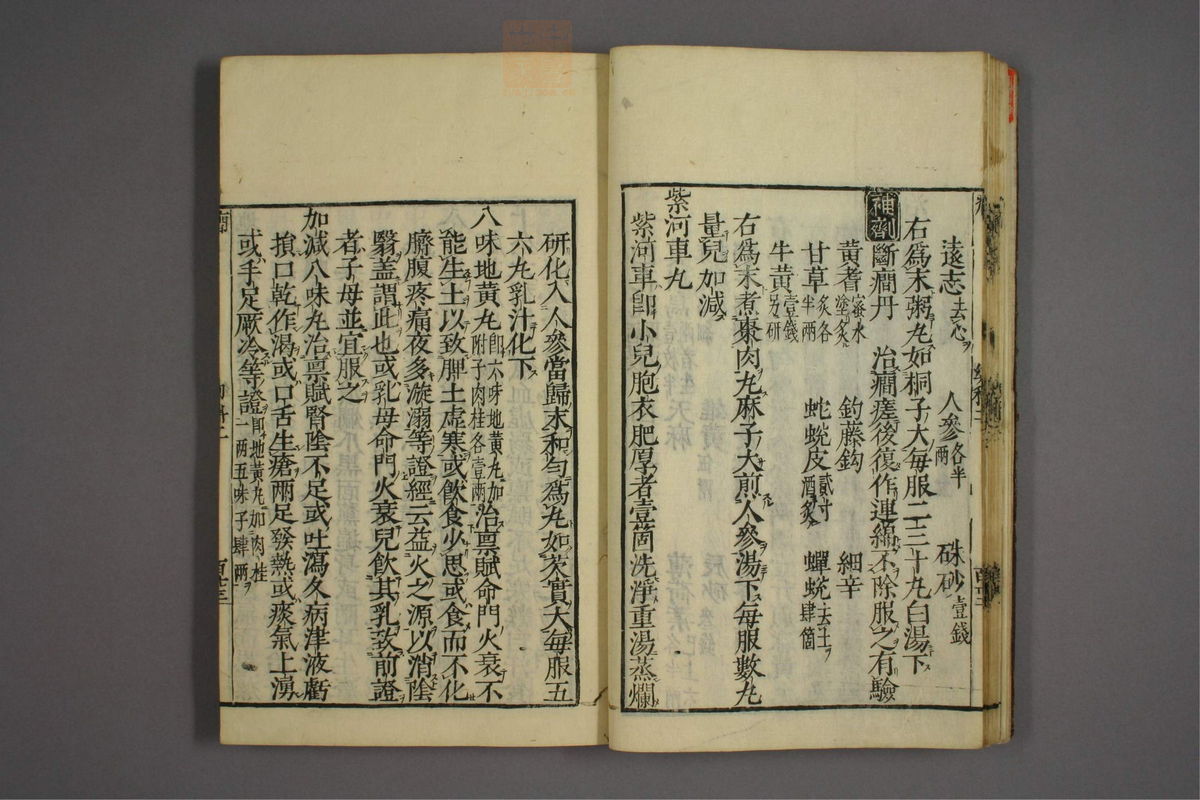 遠志去心 人參各半兩 硃砂壹錢
右爲末粥丸如桐子大每服二三十丸白湯下
補劑
斷癎丹 治癎瘥後復作連綿不除服之有驗
黃耆蜜水塗炙 釣藤鈎 細辛
甘草炙各半兩 蛇蛻皮貳寸酒炙 蟬蛻去土肆箇
牛黃壹錢另研
右爲末煮棗肉丸麻子大煎人參湯下每服數丸
量兒加減
紫河車丸
紫河車卽小兒胞衣肥厚者壹箇洗淨重湯蒸爛
研化入人參當歸末和勻爲丸如芡實大每服五
六丸乳汁化下
八味地黃丸卽六味地黃丸加附子肉桂各壹兩治禀賦命門火衰不
能生土以致脾土虛寒或飲食少思或食而不化
臍腹疼痛夜多漩溺等證經云益火之源以消陰
翳蓋謂此也或乳母命門火衰兒飲其乳致前證
者子母並宜服之
加減八味丸治禀賦腎陰不足或吐瀉久病津液虧
損口乾作渴或口舌生瘡兩足發熱或痰氣上湧
或手足厥冷等證卽地黃丸加肉桂一兩五味子肆兩